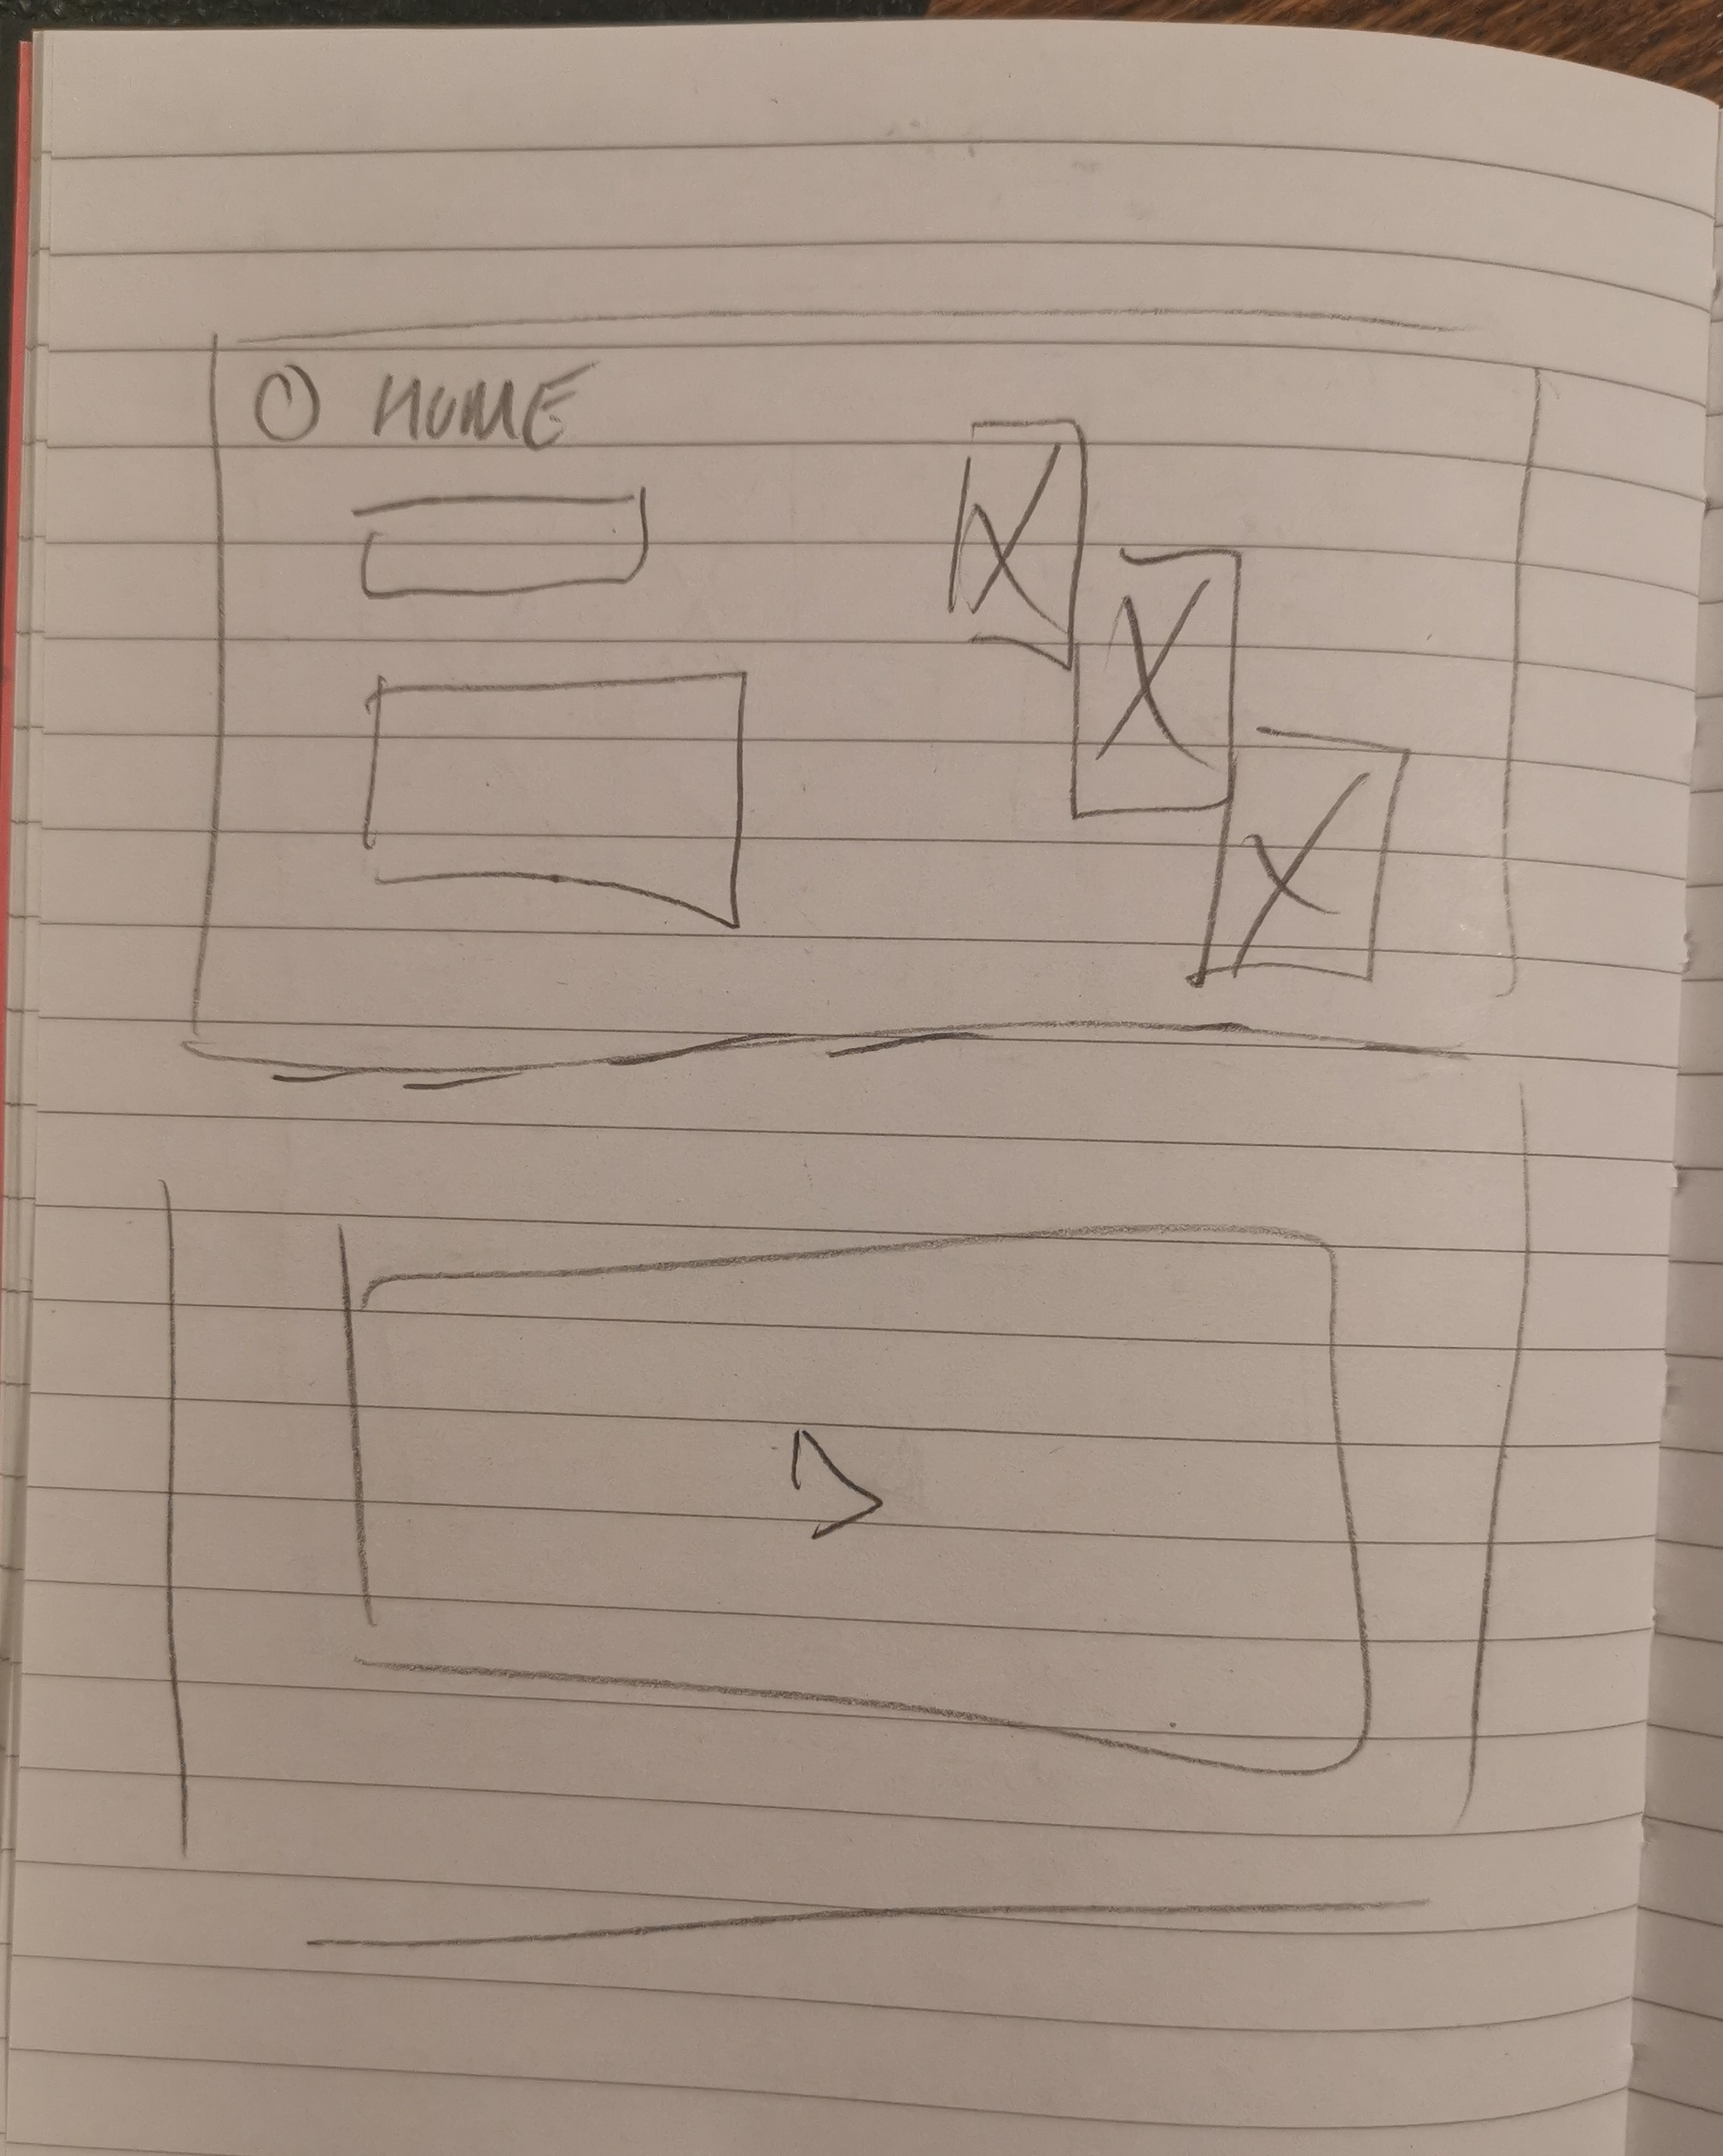 ① HOME